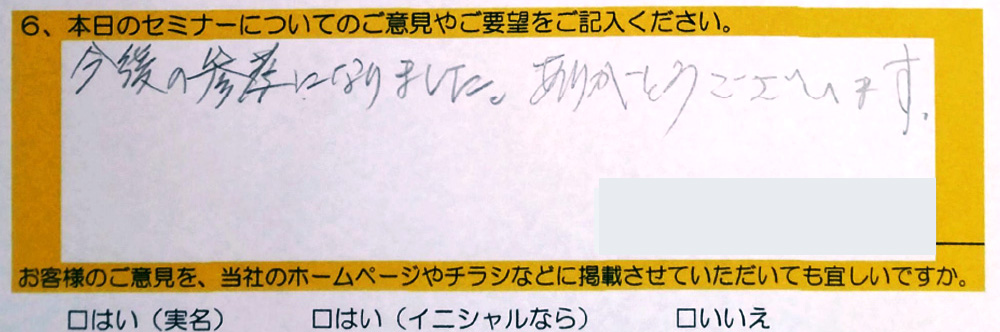 6、本日のセミナーについてのご意見やご要望をご記入ください。
今後の参考になりました。ありがとうございます。
お客様のご意見を、当社のホームページやチラシなどに掲載させていただいても宜しいですか。
□はい（実名） □はい（イニシャルなら） □いいえ